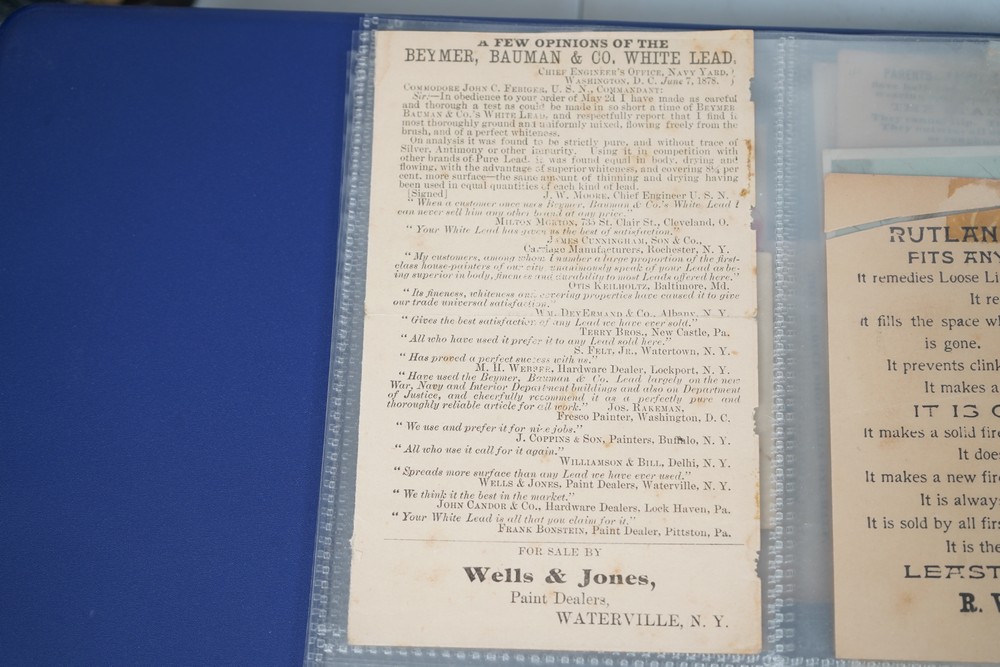 A FEW OPINIONS OF THE
BEYMER, BAUMAN & CO. WHITE LEAD.
CHIEF ENGINEER'S OFFICE, NAVY YARD,
WASHINGTON, D. C. June 7, 1878.
COMMODORE JOHN C. FEBIGER, U. S. N., COMMANDANT:
Sir:—In obedience to your order of May 2d I have made as careful
and thorough a test as could be made in so short a time of BEYMER
BAUMAN & CO.'S WHITE LEAD, and respectfully report that I find is
most thoroughly ground and uniformly mixed, flowing freely from the
brush, and of a perfect whiteness.
On analysis it was found to be strictly pure, and without trace of
Silver, Antimony or other impurity. Using it in competition with
other brands of Pure Lead, it was found equal in body, drying and
flowing, with the advantage of superior whiteness, and covering 8¼ per
cent. more surface—the same amount of thinning and drying having
been used in equal quantities of each kind of lead.
[Signed] J. W. MOORE, Chief Engineer U. S. N.
"When a customer once uses Beymer, Bauman & Co.'s White Lead I
can never sell him any other brand at any price."
MILTON MORTON, 735 St. Clair St., Cleveland, O.
"Your White Lead has given us the best of satisfaction."
JAMES CUNNINGHAM, SON & CO.,
Carriage Manufacturers, Rochester, N. Y.
"My customers, among whom I number a large proportion of the first-
class house-painters of our city unanimously speak of your Lead as be-
ing superior in body, fineness and durability to most Leads offered here."
OTIS KEILHOLTZ, Baltimore, Md.
"Its fineness, whiteness and covering properties have caused it to give
our trade universal satisfaction."
WM. DEVERMAND & CO., Albany, N. Y.
"Gives the best satisfaction of any Lead we have ever sold."
TERRY BROS., New Castle, Pa.
"All who have used it prefer it to any Lead sold here."
S. FELT, JR., Watertown, N. Y.
"Has proved a perfect success with us."
M. H. WEBBER, Hardware Dealer, Lockport, N. Y.
"Have used the Beymer, Bauman & Co. Lead largely on the new
War, Navy and Interior Department buildings and also on Department
of Justice, and cheerfully recommend it as a perfectly pure and
thoroughly reliable article for all work." JOS. RAKEMAN,
Fresco Painter, Washington, D. C.
"We use and prefer it for nice jobs."
J. COPPINS & SON, Painters, Buffalo, N. Y.
"All who use it call for it again."
WILLIAMSON & BILL, Delhi, N. Y.
"Spreads more surface than any Lead we have ever used."
WELLS & JONES, Paint Dealers, Waterville, N. Y.
"We think it the best in the market."
JOHN CANDOR & CO., Hardware Dealers, Lock Haven, Pa.
"Your White Lead is all that you claim for it."
FRANK BONSTEIN, Paint Dealer, Pittston, Pa.
FOR SALE BY
Wells & Jones,
Paint Dealers,
WATERVILLE, N. Y.
RUTLAN
FITS ANY
It remedies Loose Li
It re
It fills the space wh
is gone.
It prevents clink
It makes a
IT IS C
It makes a solid fire
It doe
It makes a new fire
It is alway
It is sold by all firs
It is the
LEAST
R. W